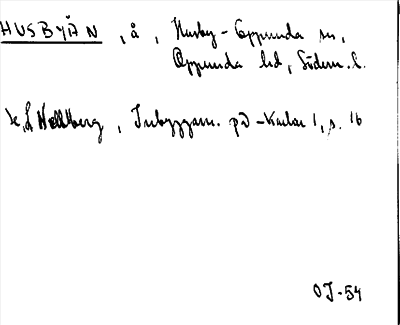 HUSBYÅN, å, Husby-Oppunda sn,
Oppunda hd, Söderm. l.
se L Hellberg, Inbyggarn. på -karlar 1, s. 16
OJ-54